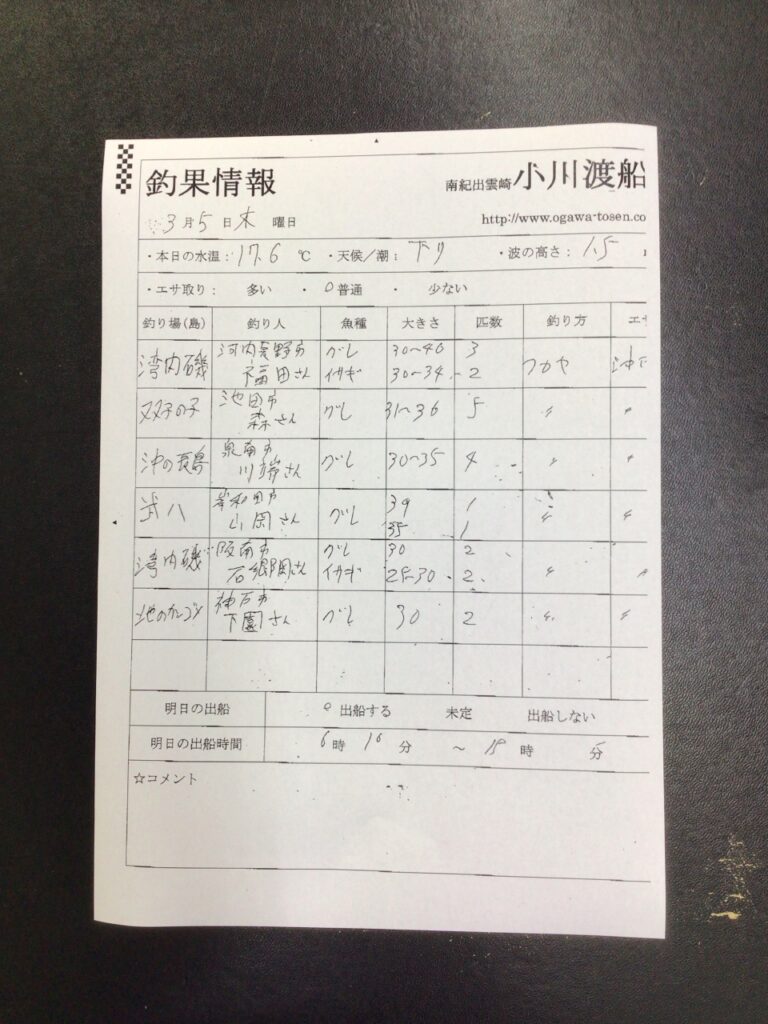 釣果情報
南紀出雲崎 小川渡船
3月5日 木 曜日
http://www.ogawa-tosen.co
・本日の水温：17.6 ℃ ・天候／潮：下り ・波の高さ：1.5
・エサ取り： 多い ・ ○普通 ・ 少ない
釣り場(島) 釣り人 魚種 大きさ 匹数 釣り方 エサ
湾内磯 河内長野市 福田さん グレ 30〜40 3 フカセ
イサギ 30〜34 2
双子の子 池田市 森さん グレ 31〜36 5 〃 〃
沖の長島 泉南市 川端さん グレ 30〜35 4 〃 〃
岸和田市 山岡さん グレ 39 1 〃 〃
35 1
湾内磯 阪南市 石郷岡さん グレ 30 2 〃 〃
イサギ 25〜30 2
神戸市 下園さん グレ 30 2 〃 〃
明日の出船 ○出船する 未定 出船しない
明日の出船時間 6時 10分 〜 時 分
☆コメント